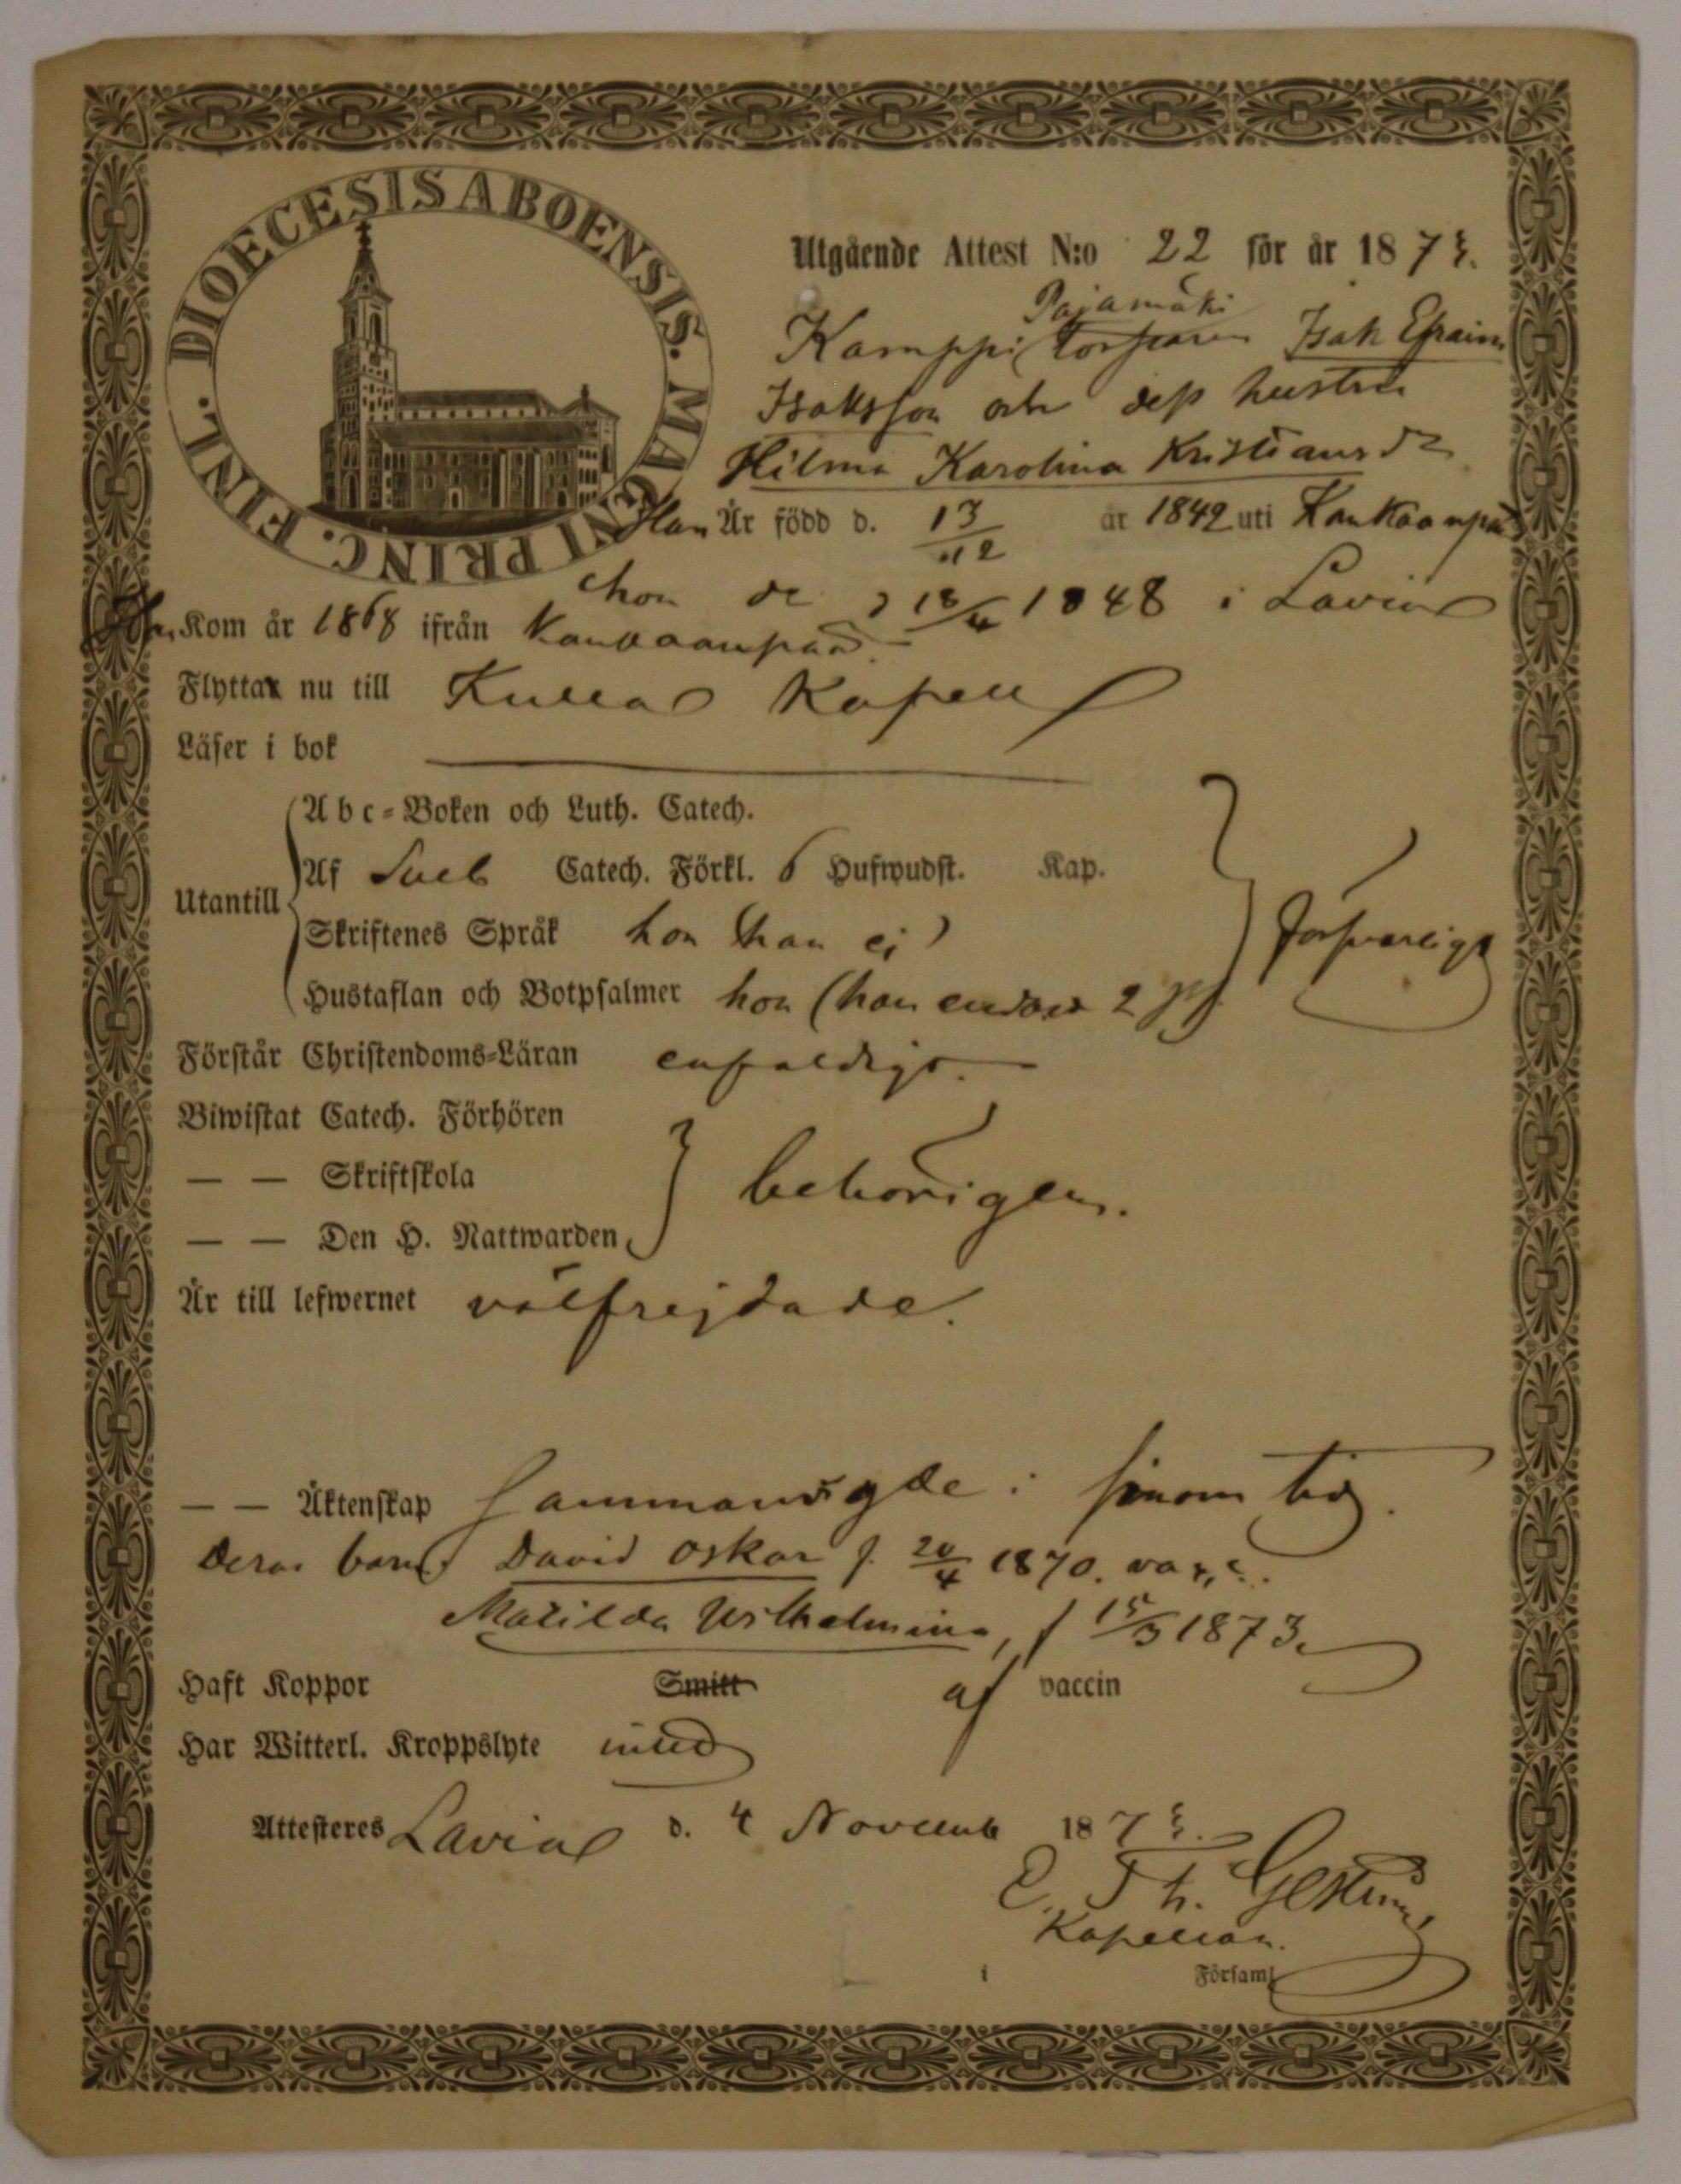 DIOECESIS ABOENSIS. MAGNI PRINC. FINL.
Utgående Attest N:o 22 för år 1873.
Pajamäki
Kamppi torparen Isak Efraim
Isaksson och dess hustru
Hilma Karolina Kristiansdr
Han Är född d. 13/12 år 1842 uti Kankaanpää
hon de 18/4 1848 i Lavia
Han Kom år 1868 ifrån Kankaanpää.
Flyttar nu till Kullaa Kapell
Läser i bok
Abc-Boken och Luth. Catech.
Af Sveb Catech. Förkl. 6 Hufwudst. Kap.
Utantill
Skriftenes Språk hon (han ej)
försvarligt
Hustaflan och Botpsalmer hon (han endast 2
Förstår Christendoms-Läran enfaldigt.
Biwistat Catech. Förhören
— — Skriftskola
behörigen.
— — Den H. Nattwarden
Är till lefwernet välfrejdade.
— — Äktenskap sammanvigde i sinom tid.
Deras barn: David Oskar f. 20/4 1870. vacc.
Matilda Wilhelmina, f 15/3 1873.
Haft Koppor Smitt af vaccin
Har Witterl. Kroppslyte intet
Attesteres Lavia d. 4 Novemb 1873.
E. Th.
Kapellan.
i Församl